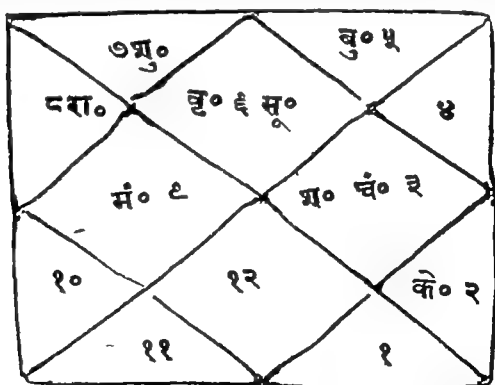 ७शु० बु० ५
८रा० बृ० ६ सू० ४
मं० ९ श० चं० ३
१० १२ के० २
११ १